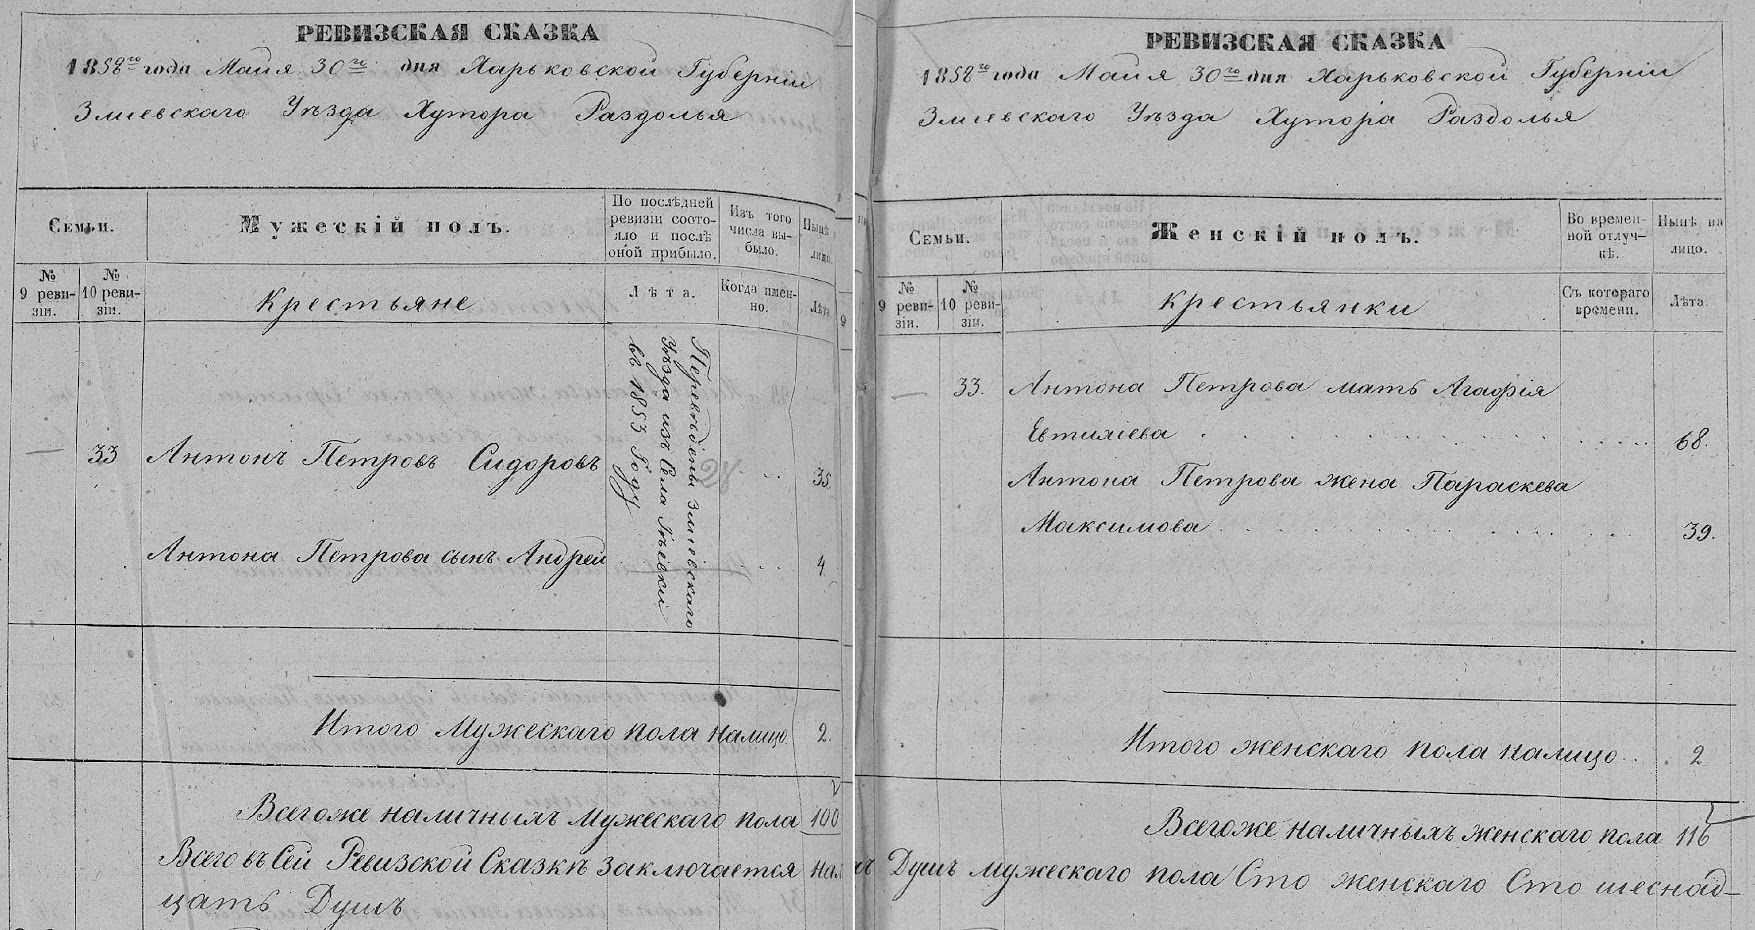 РЕВИЗСКАЯ СКАЗКА
1858го года Майя 30го дня Харьковской Губернии
Змиевскаго Уѣзда Хутора Раздолья
Семьи.
Мужескій полъ.
По послѣдней ревизіи состояло и послѣ оной прибыло.
Изъ того числа выбыло.
Нынѣ лицо.
№ 9 ревизіи.
№ 10 ревизіи.
Крестьяне
Лѣта.
Когда именно.
Лѣта
— 33 Антонъ Петровъ Сидоровъ 35.
Переведены Змиевскаго
Уѣзда изъ Села
въ 1853 Году
Антона Петрова сынъ Андрей 4.
Итого Мужескаго пола налицо. 2.
Всего же наличныхъ Мужескаго пола 100
Всего въ Сей Ревизской Сказкѣ заключается
цать Душъ
РЕВИЗСКАЯ СКАЗКА
1858го года Майя 30го дня Харьковской Губерніи
Змиевскаго Уѣзда Хутора Раздолья
Семьи.
Женскій полъ.
Во временной отлучкѣ.
Нынѣ на лицо.
№ 9 ревизіи.
№ 10 ревизіи.
Крестьянки
Съ котораго времени.
Лѣта.
— 33. Антона Петрова мать Агафія
Евтихіева 68.
Антона Петрова жена Параскева
Максимова 39.
Итого женскаго пола налицо 2
Всего же наличныхъ женскаго пола 116
Душъ мужескаго пола Сто женскаго Сто шеснад-